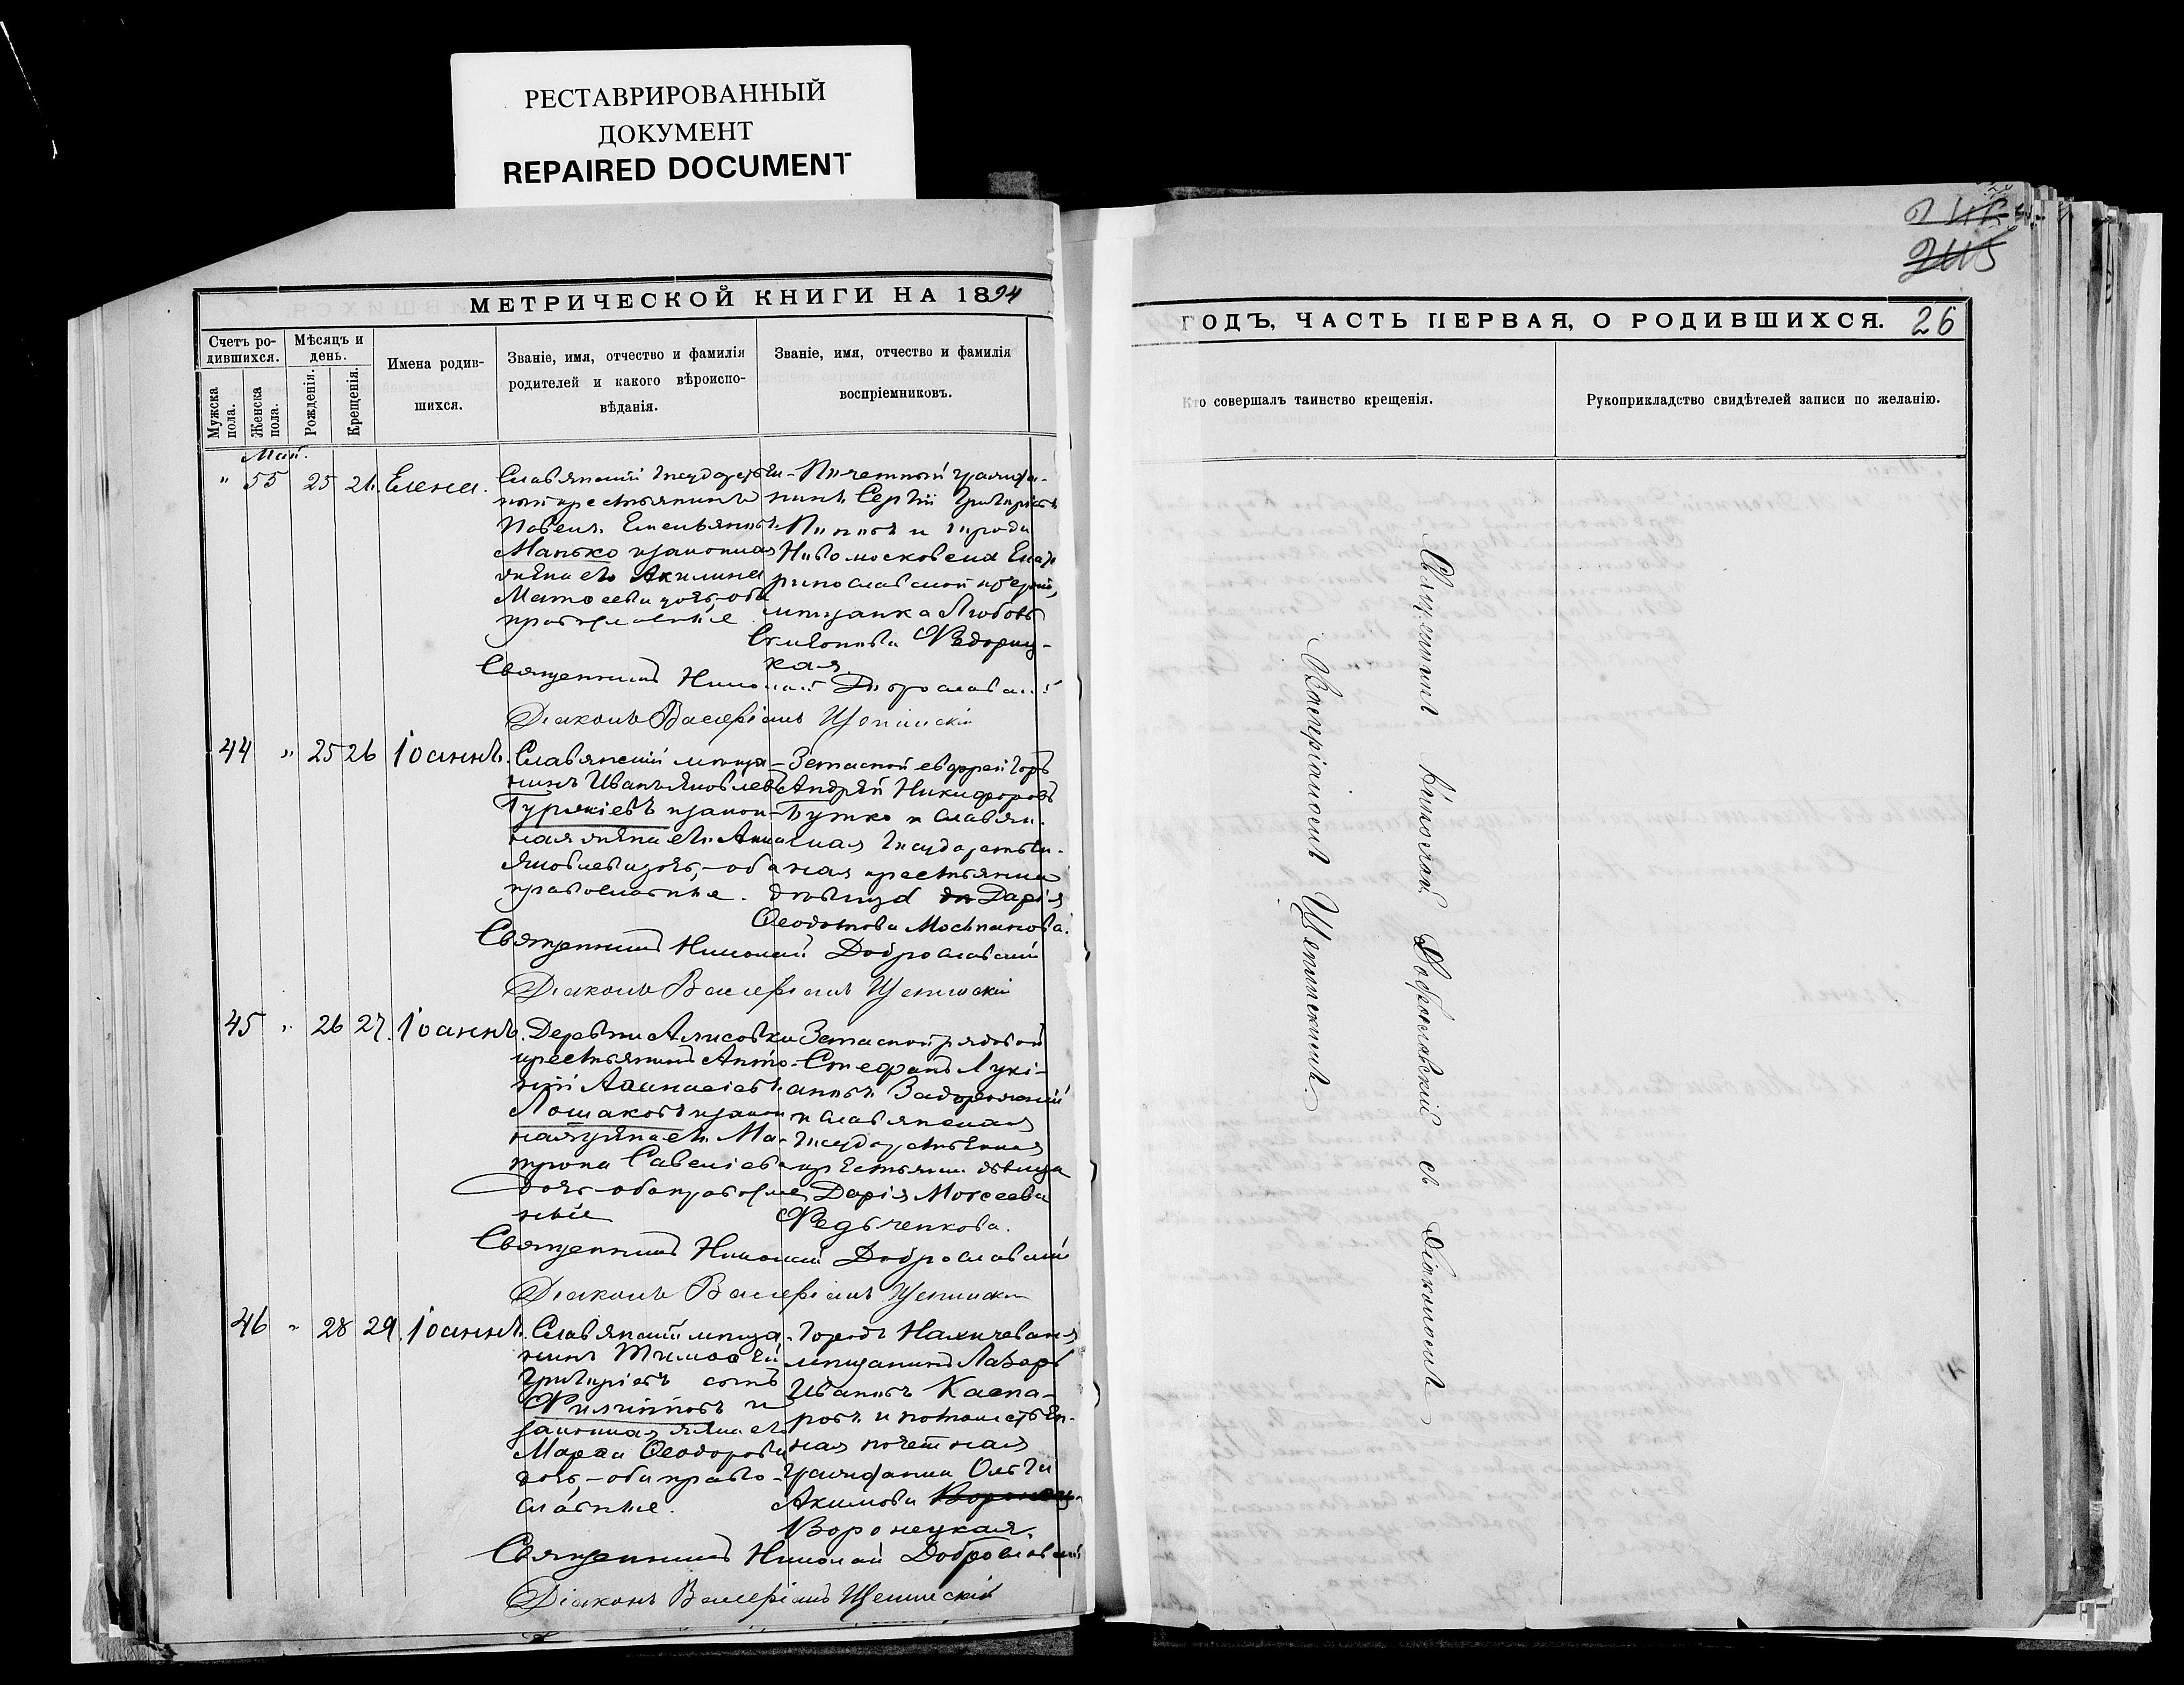 РЕСТАВРИРОВАННЫЙ
ДОКУМЕНТ
REPAIRED DOCUMENT
МЕТРИЧЕСКОЙ КНИГИ НА 1894
Счетъ ро-
дившихся.
Мужска
пола.
Женска
пола.
Мѣсяцъ и
день.
Рожденія.
Крещенія.
Имена родив-
шихся.
Званіе, имя, отчество и фамилія
родителей и какого вѣроиспо-
вѣданія.
Званіе, имя, отчество и фамилія
воспріемниковъ.
Май.
" 55 25 26. Елена.
Павелъ Емельяновъ
Манько и законная
жена его Акилина
Матѳеева дочь, оба
православные
Почетный гражда-
нинъ Сергій Григорьевъ
Поповъ и города
Новомосковска Екате
ринославской губерніи,
мещанка Любовь
Симеонова Федориц-
кая.
Священникъ Николай Доброславскій
Діаконъ Валеріанъ Щепинскій
44 " 25 26 Іоаннъ.
Славянскій меща-
нинъ Иванъ Яковлевъ
Гуржіевъ и закон-
ная жена его Анна
Яковлева дочь, - оба
православные.
Запасной ефрейторъ
Андрей Никифоровъ
Бутко и Славян.
ская государствен.
ная крестьянка
девица Дарія
Ѳеодотова Мосьпанова.
Священникъ Николай Доброславскій
Діаконъ Валеріанъ Щепинскій
45 " 26 27. Іоаннъ.
Деревни
крестьянинъ Анто-
ній Аѳанасіевъ
Лошаковъ и закон
ная жена его Ма-
трона Савеліева
дочь - оба православ
ные
Запасной рядовой
Стефанъ Лукі-
ановъ Задорожній
и Славянская
государственная
крестьян. девица
Дарія Моисеева
Федьченкова.
Священникъ Николай Доброславскій
Діаконъ Валеріанъ Щепинскій
46 " 28 29. Іоаннъ.
Славянскій меща-
нинъ Тимоѳей
Григоріевъ сынъ
Филиповъ и
законная жена его
Марѳа Ѳеодорова
дочь, - оба право-
славные.
Городъ Нахичевань
мещанинъ Лазарь
Ивановъ Каспа-
ровъ и потомствен-
ная почетная
гражданка Ольга
Акимова
Воронецкая.
Священникъ Николай Доброславскій
Діаконъ Валеріанъ Щепинскій
245
ГОДЪ, ЧАСТЬ ПЕРВАЯ, О РОДИВШИХСЯ. 26
Кто совершалъ таинство крещенія.
Рукоприкладство свидѣтелей записи по желанію.
Священникъ Николай Доброславскій съ діакономъ
Валеріаномъ Щепинскимъ.